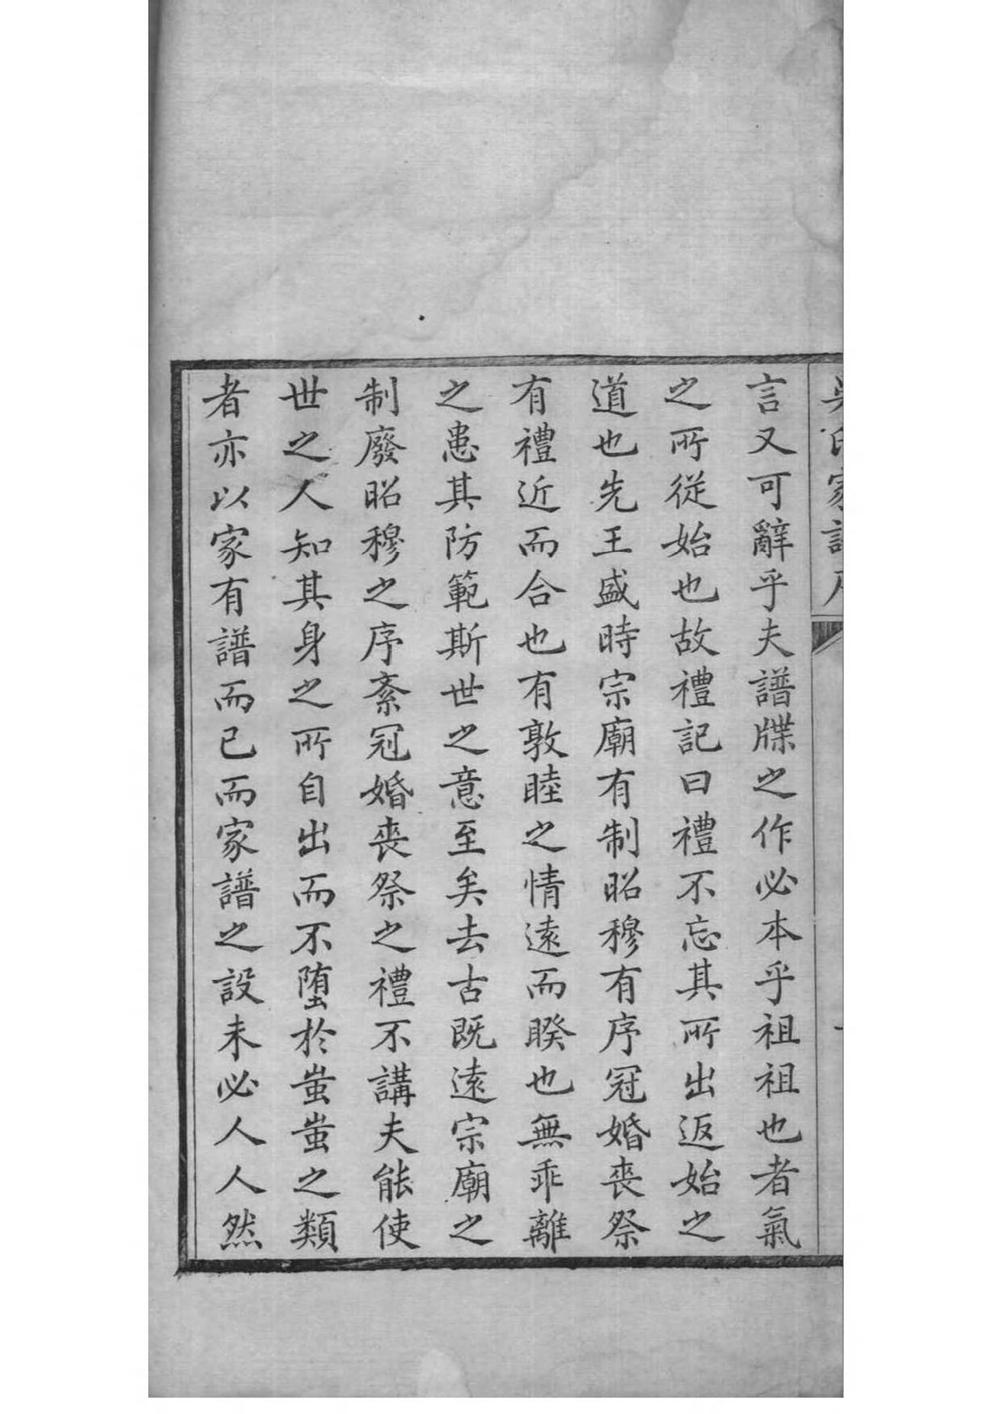 吳氏家譜序
言又可辭乎夫譜牒之作必本乎祖祖也者氣
之所從始也故禮記曰禮不忘其所出返始之
道也先王盛時宗廟有制昭穆有序冠婚喪祭
有禮近而合也有敦睦之情遠而睽也無乖離
之患其防範斯世之意至矣去古既遠宗廟之
制廢昭穆之序紊冠婚喪祭之禮不講夫能使
世之人知其身之所自出而不墮於蚩蚩之類
者亦以家有譜而已而家譜之設未必人人然